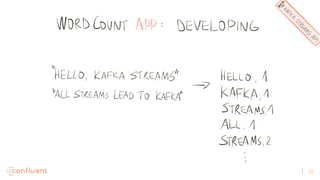 WORDCOUNT APP: DEVELOPING
KAFKA STREAMS API
"HELLO, KAFKA STREAMS"
"ALL STREAMS LEAD TO KAFKA"
HELLO, 1
KAFKA, 1
STREAMS, 1
ALL, 1
STREAMS, 2
confluent